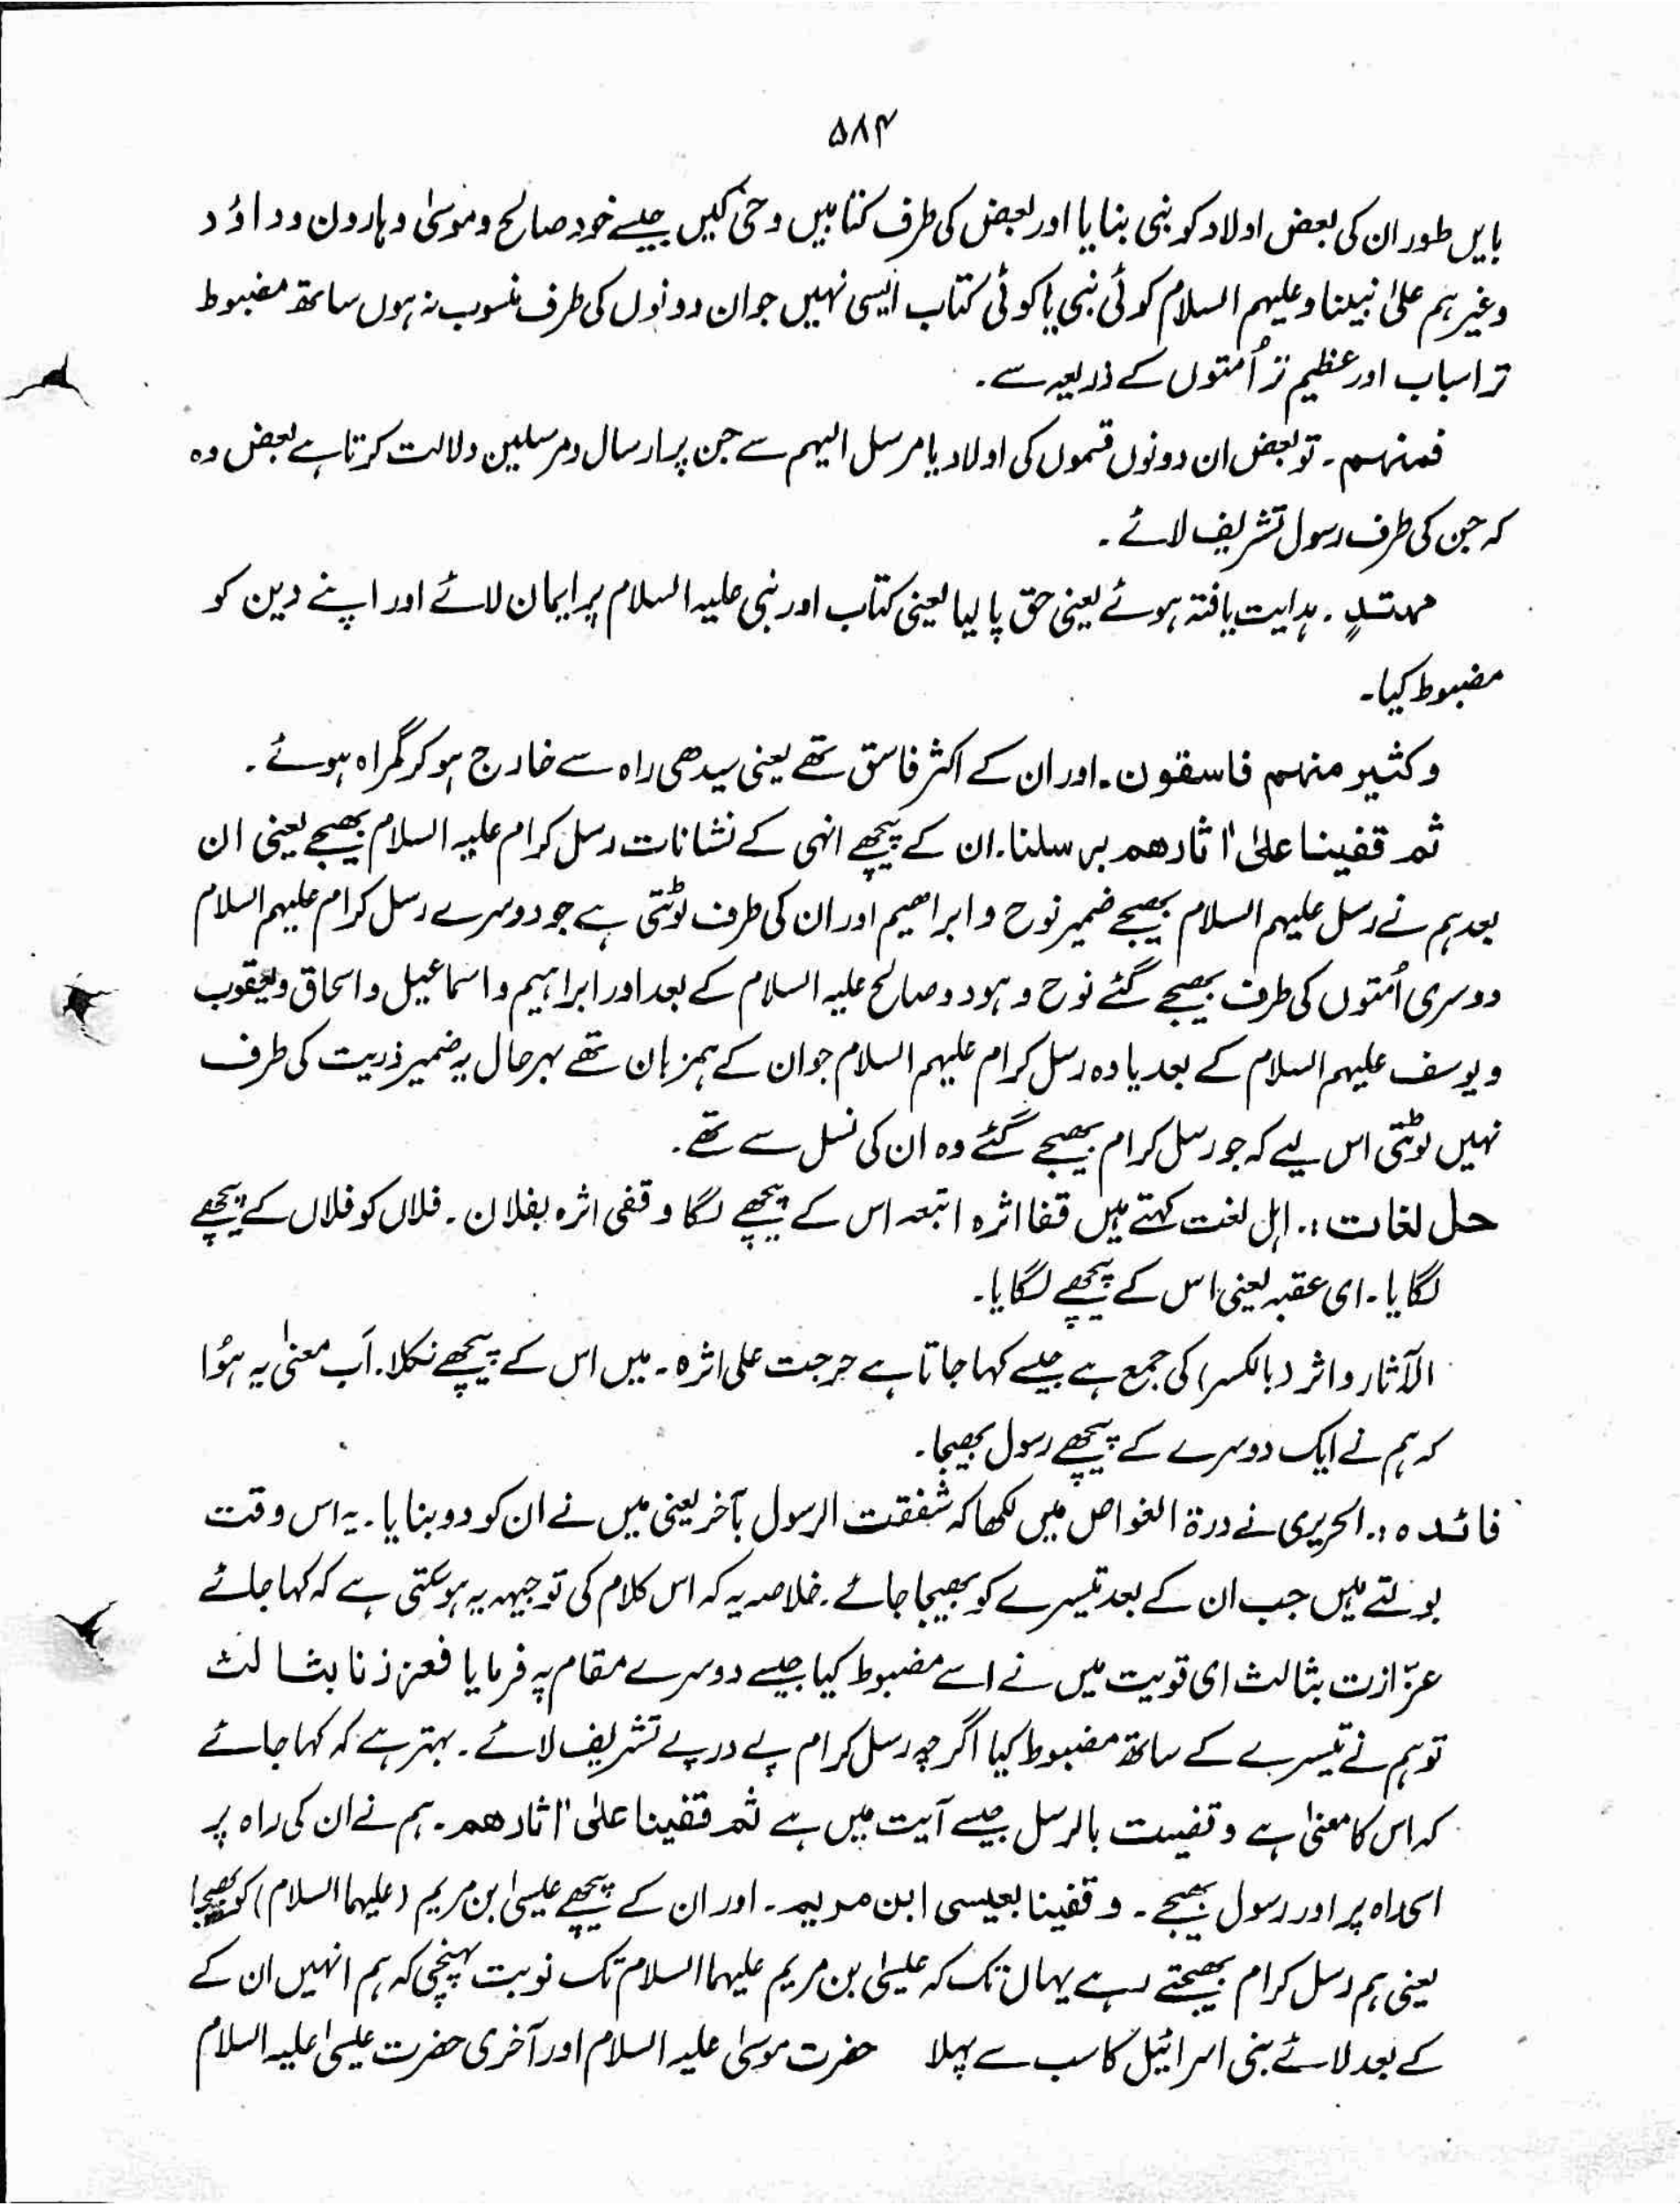 ۵۸۴
بایں طور ان کی بعض اولاد کو نبی بنایا اور بعض کی طرف کتابیں وحی کیں جیسے خود صالح و موسیٰ و ہارون و داؤد
وغیرہم علیٰ نبینا وعلیہم السلام کوئی نبی یا کوئی کتاب ایسی نہیں جو ان دونوں کی طرف منسوب نہ ہوں ساتھ مضبوط
تر اسباب اور عظیم تر اُمتوں کے ذریعہ سے ۔
فمنہم ۔ تو بعض ان دونوں قسموں کی اولاد یا مرسل الیہم سے جن پر ارسال و مرسلین دلالت کرتا ہے بعض وہ
کہ جن کی طرف رسول تشریف لائے ۔
مہتدٍ ۔ ہدایت یافتہ ہوئے یعنی حق پا لیا یعنی کتاب اور نبی علیہ السلام پر ایمان لائے اور اپنے دین کو
مضبوط کیا ۔
وکثیر منہم فاسقون ۔ اور ان کے اکثر فاسق تھے یعنی سیدھی راہ سے خارج ہو کر گمراہ ہوئے ۔
ثم قفینا علیٰ اٰثارھم برسلنا ۔ ان کے پیچھے انہی کے نشانات رسل کرام علیہ السلام بھیجے یعنی ان
بعد ہم نے رسل علیہم السلام بھیجے ضمیر نوح و ابراھیم اور ان کی طرف لوٹتی ہے جو دوسرے رسل کرام علیہم السلام
دوسری اُمتوں کی طرف بھیجے گئے نوح و ہود و صالح علیہ السلام کے بعد اور ابراہیم و اسماعیل و اسحاق و یعقوب
و یوسف علیہم السلام کے بعد یا وہ رسل کرام علیہم السلام جو ان کے ہمزبان تھے بہر حال یہ ضمیر ذریت کی طرف
نہیں لوٹتی اس لیے کہ جو رسل کرام بھیجے گئے وہ ان کی نسل سے تھے ۔
حل لغات :۔ اہل لغت کہتے ہیں قفا اثرہ اتبعہ اس کے پیچھے لگا و قفی اثرہ بفلان ۔ فلاں کو فلاں کے پیچھے
لگایا ۔ ای عقبہ یعنی اس کے پیچھے لگایا ۔
الآثار و اثر (بالکسر) کی جمع ہے جیسے کہا جاتا ہے حرجت علی اثرہ ۔ میں اس کے پیچھے نکلا ۔ اَب معنیٰ یہ ہؤا
کہ ہم نے ایک دوسرے کے پیچھے رسول بھیجا ۔
فائدہ :۔ الحریری نے درۃ الغواص میں لکھا کہ شفقت الرسول بآخر یعنی میں نے ان کو دو بنایا ۔ یہ اس وقت
بولتے ہیں جب ان کے بعد تیسرے کو بھیجا جائے ۔ خلاصہ یہ کہ اس کلام کی توجیہہ یہ ہو سکتی ہے کہ کہا جائے
عزّازت بثالث ای قویت میں نے اسے مضبوط کیا جیسے دوسرے مقام پہ فرمایا فعززنا بثالث
تو ہم نے تیسرے کے ساتھ مضبوط کیا اگرچہ رسل کرام پے در پے تشریف لائے ۔ بہتر ہے کہ کہا جائے
کہ اس کا معنیٰ ہے وقفیت بالرسل جیسے آیت میں ہے ثم قفینا علیٰ اٰثارھم ۔ ہم نے ان کی راہ پر
اسی راہ پر اور رسول بھیجے ۔ وقفینا بعیسی ابن مریم ۔ اور ان کے پیچھے عیسیٰ بن مریم (علیہما السلام) کو بھیجا
یعنی ہم رسل کرام بھیجتے رہے یہاں تک کہ عیسیٰ بن مریم علیہما السلام تک نوبت پہنچی کہ ہم انہیں ان کے
کے بعد لائے بنی اسرائیل کا سب سے پہلا حضرت موسیٰ علیہ السلام اور آخری حضرت عیسیٰ علیہ السلام